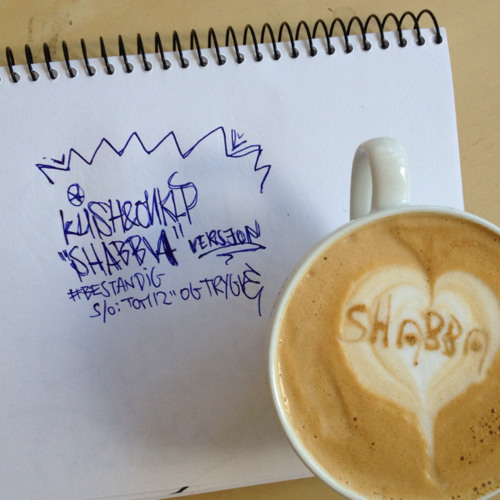 "SHABBA" VERSION
#BESTANDIG
S/O: TOM12" OG TRYGVE
SHABBA